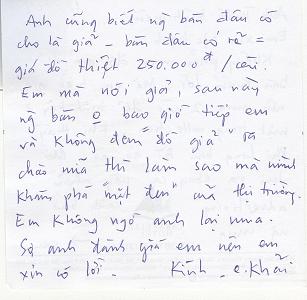 Anh cũng biết ng bán đâu có
cho là giả - bán đâu có rẽ =
giá đồ thiệt 250.000đ /cái.
Em mà nói giả, sau này
ng bán o bao giờ tiếp em
và không đem "đồ giả" ra
chào nữa thì làm sao mà mình
khám phá "mặt đen" của thị trường.
Em không ngờ anh lại mua.
Sợ anh đánh giá em nên em
xin có lời. Kính, e. Khải